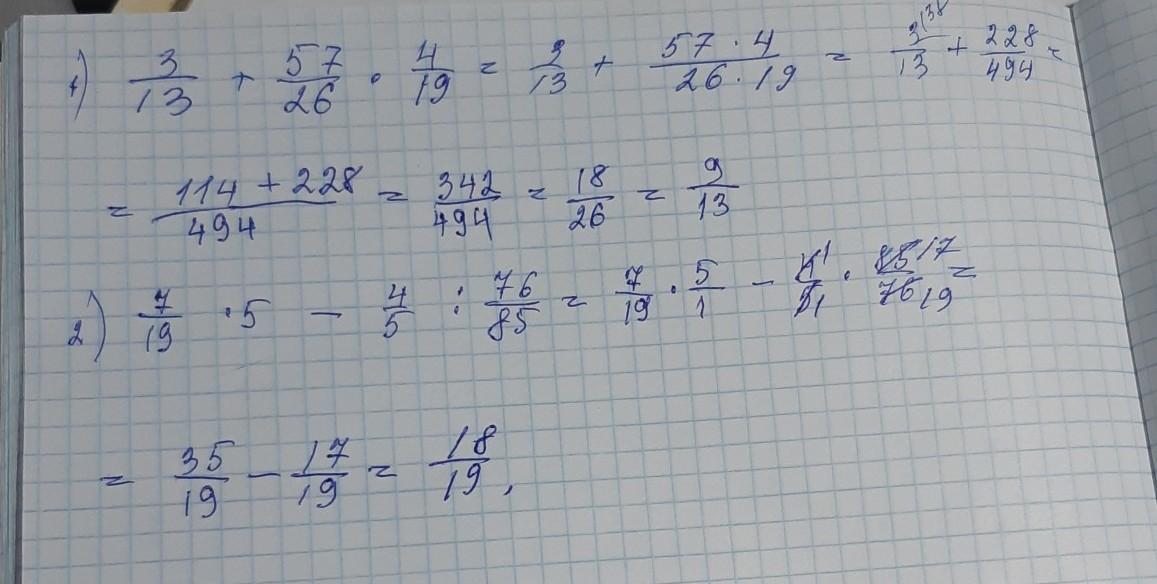 1) 3/13 + 57/26 · 4/19 = 3/13 + 57 · 4/26 · 19 = 3(38/13 + 228/494 =
= 114 + 228/494 = 342/494 = 18/26 = 9/13
2) 7/19 · 5 - 4/5 : 76/85 = 7/19 · 5/1 - 4 1/5 1 · 85 17/76 19 =
= 35/19 - 17/19 = 18/19,